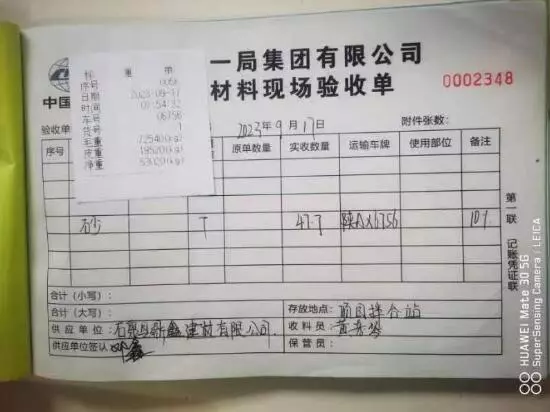 一局集团有限公司
材料现场验收单
0002348
中国
称重单
序号 0059
日期 2023-09-17
时间 07:54:32
车号 06756
货号
毛重 72540(kg)
皮重 19520(kg)
净重 53020(kg)
验收单
2023年9月17日
附件张数:
序号 原单数量 实收数量 运输车牌 使用部位 备注
砂 T 47.7 陕AX6756 10%
第一联 记账凭证联
合计(小写):
合计(大写): 存放地点: 项目拌合站
供应单位: 建材有限公司 收料员: 黄
供应单位签认: 保管员:
HUAWEI Mate 30 5G
SuperSensing Camera / LEICA